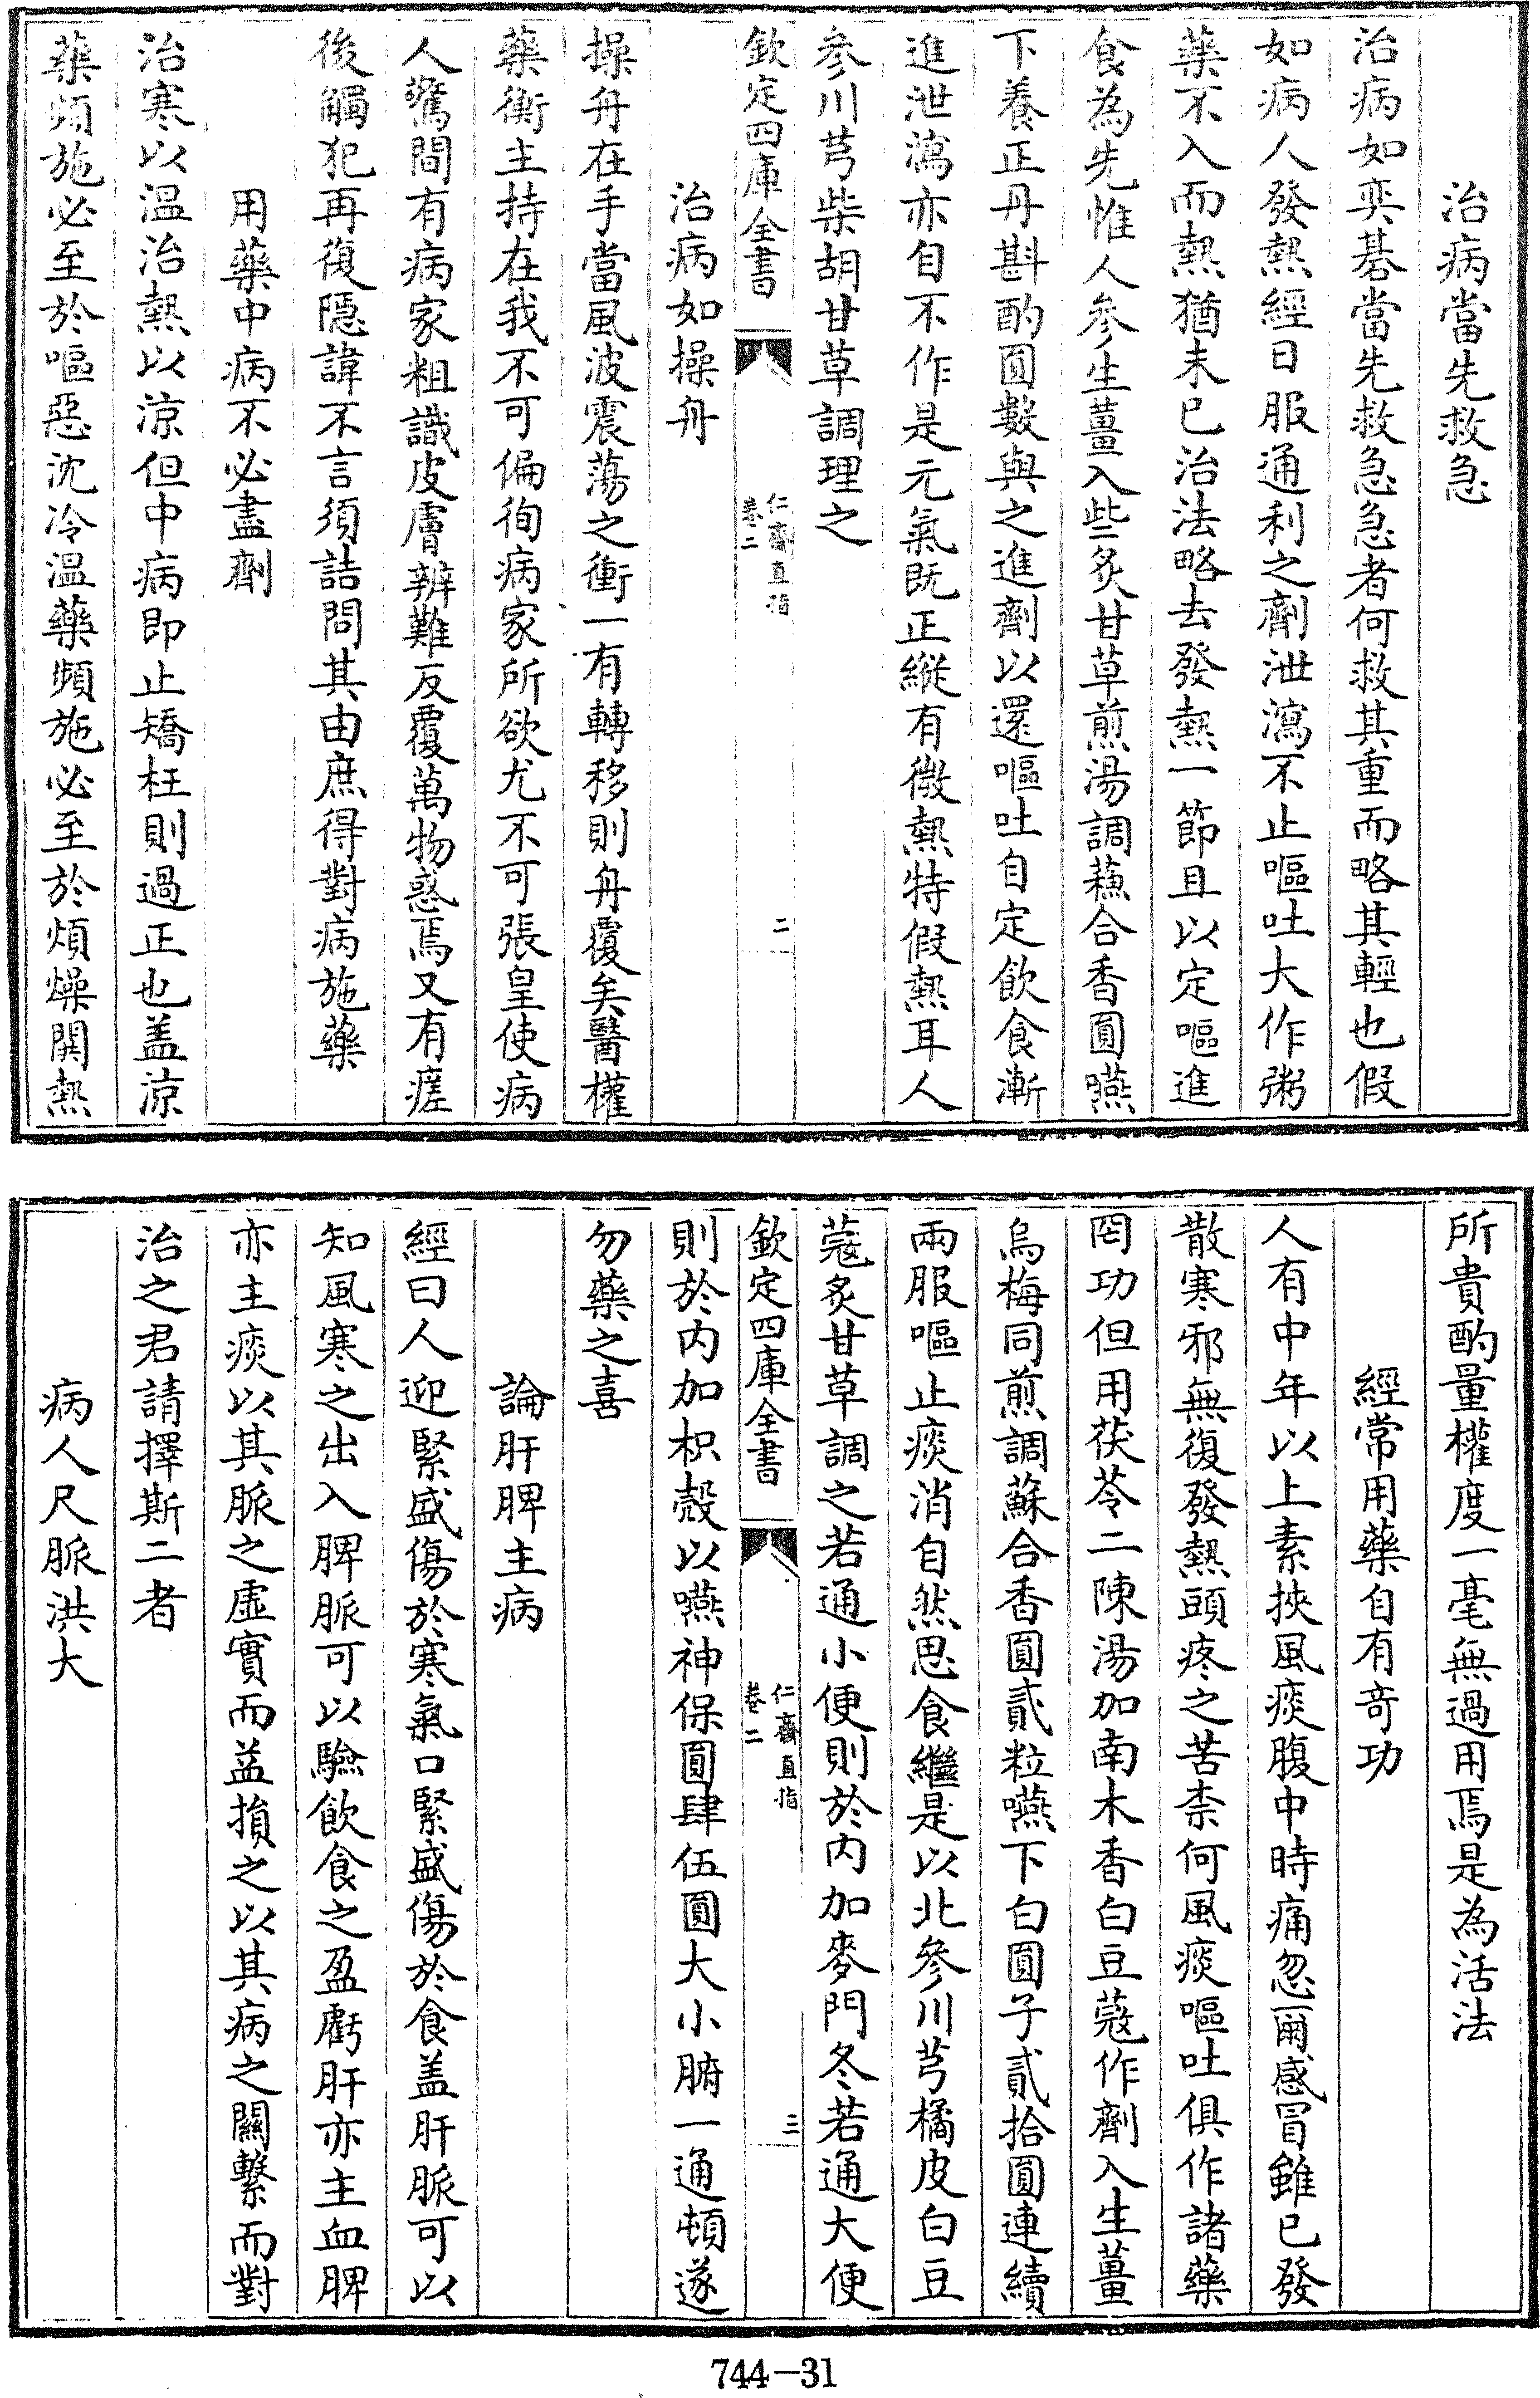 治病當先救急
治病如奕碁當先救急急者何救其重而略其輕也假
如病人發熱經日服通利之劑泄瀉不止嘔吐大作粥
藥不入而熱猶未已治法略去發熱一節且以定嘔進
食為先惟人參生薑入些炙甘草煎湯調蘓合香圓嚥
下養正丹斟酌圓數與之進劑以還嘔吐自定飲食漸
進泄瀉亦自不作是元氣既正縱有微熱特假熱耳人
參川芎柴胡甘草調理之
欽定四庫全書
仁齋直指
卷二
二
治病如操舟
操舟在手當風波震蕩之衝一有轉移則舟覆矣醫權
藥衡主持在我不可偏徇病家所欲尤不可張皇使病
人驚間有病家粗識皮膚辨難反覆萬物惑焉又有瘥
後觸犯再復隠諱不言須詰問其由庶得對病施藥
用藥中病不必盡劑
治寒以温治熱以凉但中病即止矯枉則過正也盖凉
藥頻施必至於嘔惡沈冷温藥頻施必至於煩燥閧熱
所貴酌量權度一毫無過用焉是為活法
經常用藥自有奇功
人有中年以上素挾風痰腹中時痛忽爾感冒雖已發
散寒邪無復發熱頭疼之苦柰何風痰嘔吐俱作諸藥
罔功但用茯苓二陳湯加南木香白豆蔻作劑入生薑
烏梅同煎調蘇合香圓貳粒嚥下白圓子貳拾圓連續
兩服嘔止痰消自然思食繼是以北參川芎橘皮白豆
蔻炙甘草調之若通小便則於内加麥門冬若通大便
欽定四庫全書
仁齋直指
卷二
三
則於内加枳殻以嚥神保圓肆伍圓大小腑一通頓遂
勿藥之喜
論肝脾主病
經曰人迎緊盛傷於寒氣口緊盛傷於食盖肝脈可以
知風寒之出入脾脈可以驗飲食之盈虧肝亦主血脾
亦主痰以其脈之虛實而益損之以其病之關繫而對
治之君請擇斯二者
病人尺脈洪大
744-31